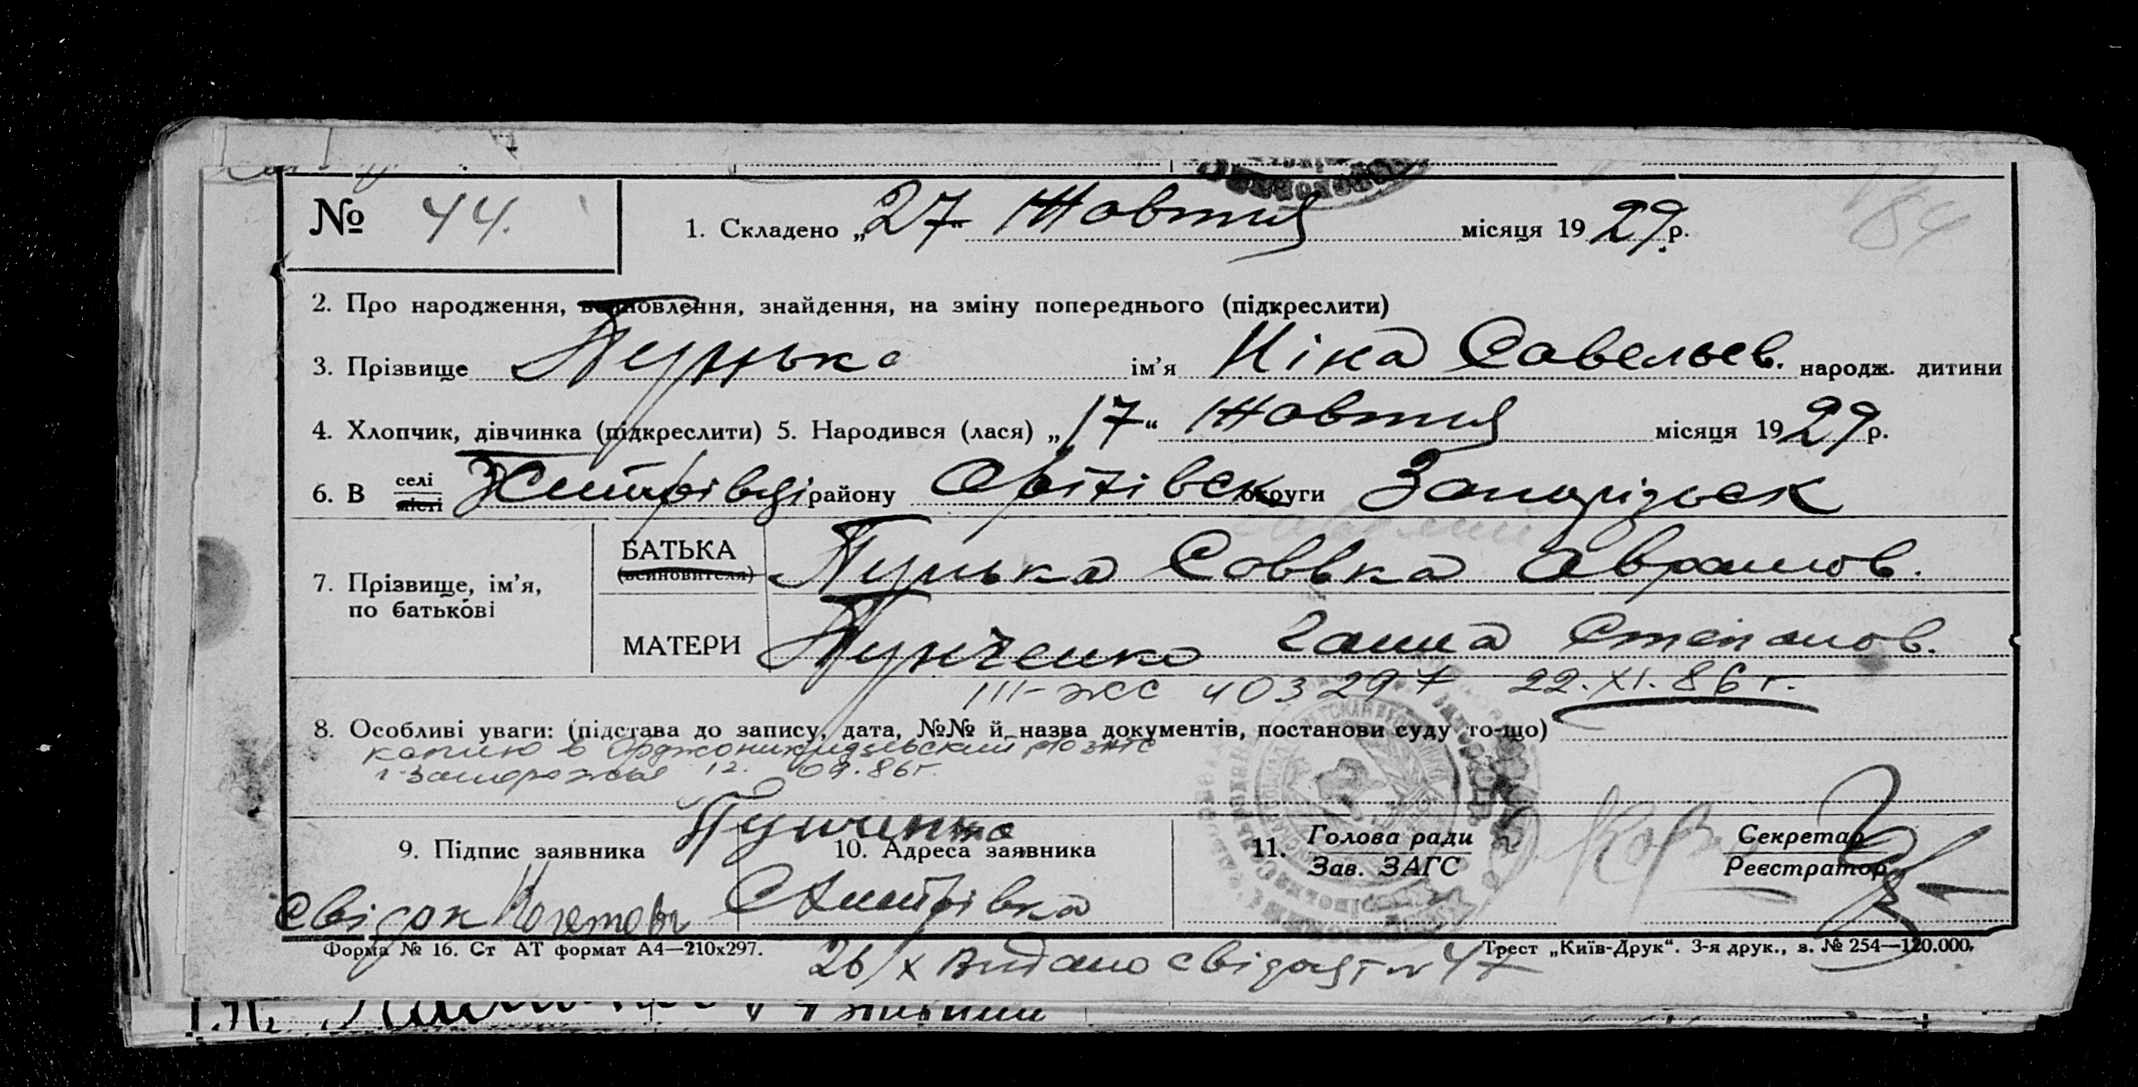 № 44.
1. Складено „27“ Жовтня місяця 1929 р.
184
2. Про народження, всиновлення, знайдення, на зміну попереднього (підкреслити)
3. Прізвище Пунька ім’я Ніна Савельев. народж. дитини
4. Хлопчик, дівчинка (підкреслити) 5. Народився (лася) „17“ Жовтня місяця 1929 р.
6. В селі місті району Оріхівск округи Запорізьск
7. Прізвище, ім’я, по батькові
БАТЬКА (всиновителя) Пунька Соввка Аврамов.
МАТЕРИ Пунченко Ганна Степанов.
III-ЖС 403297 22.XI.86 г.
8. Особливі уваги: (підстава до запису, дата, №№ й назва документів, постанови суду то-що)
копию в Орджоникидзевский р/о ЗАГС
г. Запорожья 12. 09.86г.
9. Підпис заявника Пунченко
10. Адреса заявника
11. Голова ради Зав. ЗАГС
Секретар Реєстратор
свідок
С Дмитрівка
Форма № 16. Ст АТ формат А4—210х297.
Трест „Київ-Друк“. 3-я друк., з. № 254—120.000.
26/X Видано свідоцт № 47